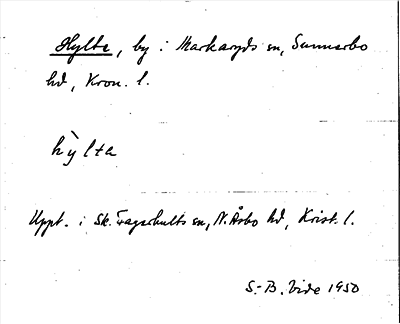 Hylte, by i Markaryds sn, Sunnerbo
hd, Kron. l.
hy̆lta
Uppt. i Sk. Fagerhults sn, N. Åsbo hd, Krist. l.
S.-B. Vide 1950